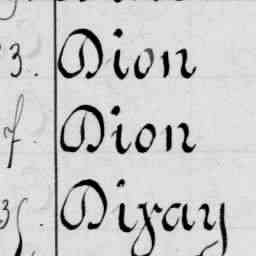 3. Dion
7. Dion
35. Dixay